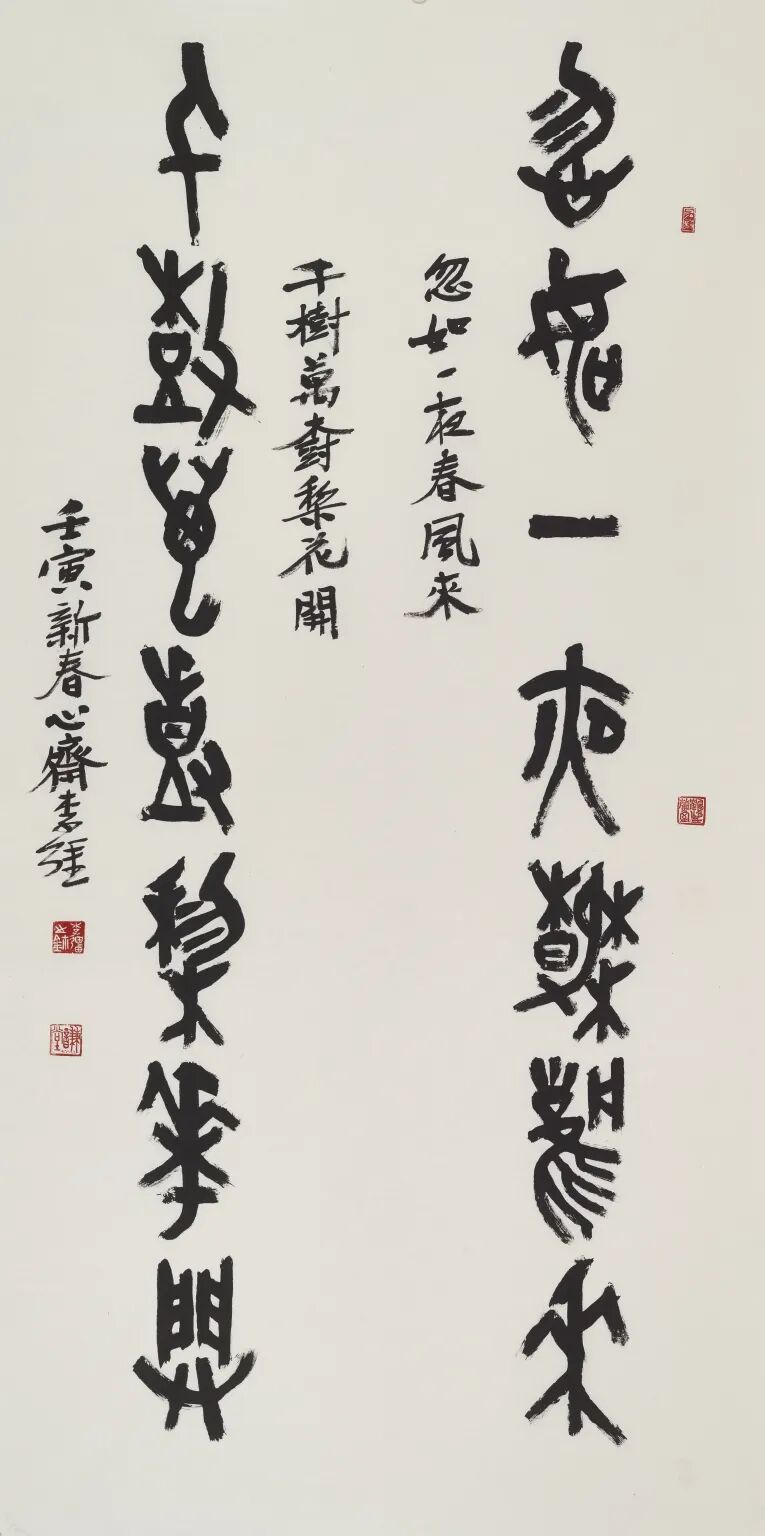 忽如一夜春風來
忽如一夜春風來
千樹萬樹梨花開
千樹萬樹梨華開
壬寅新春心齋李